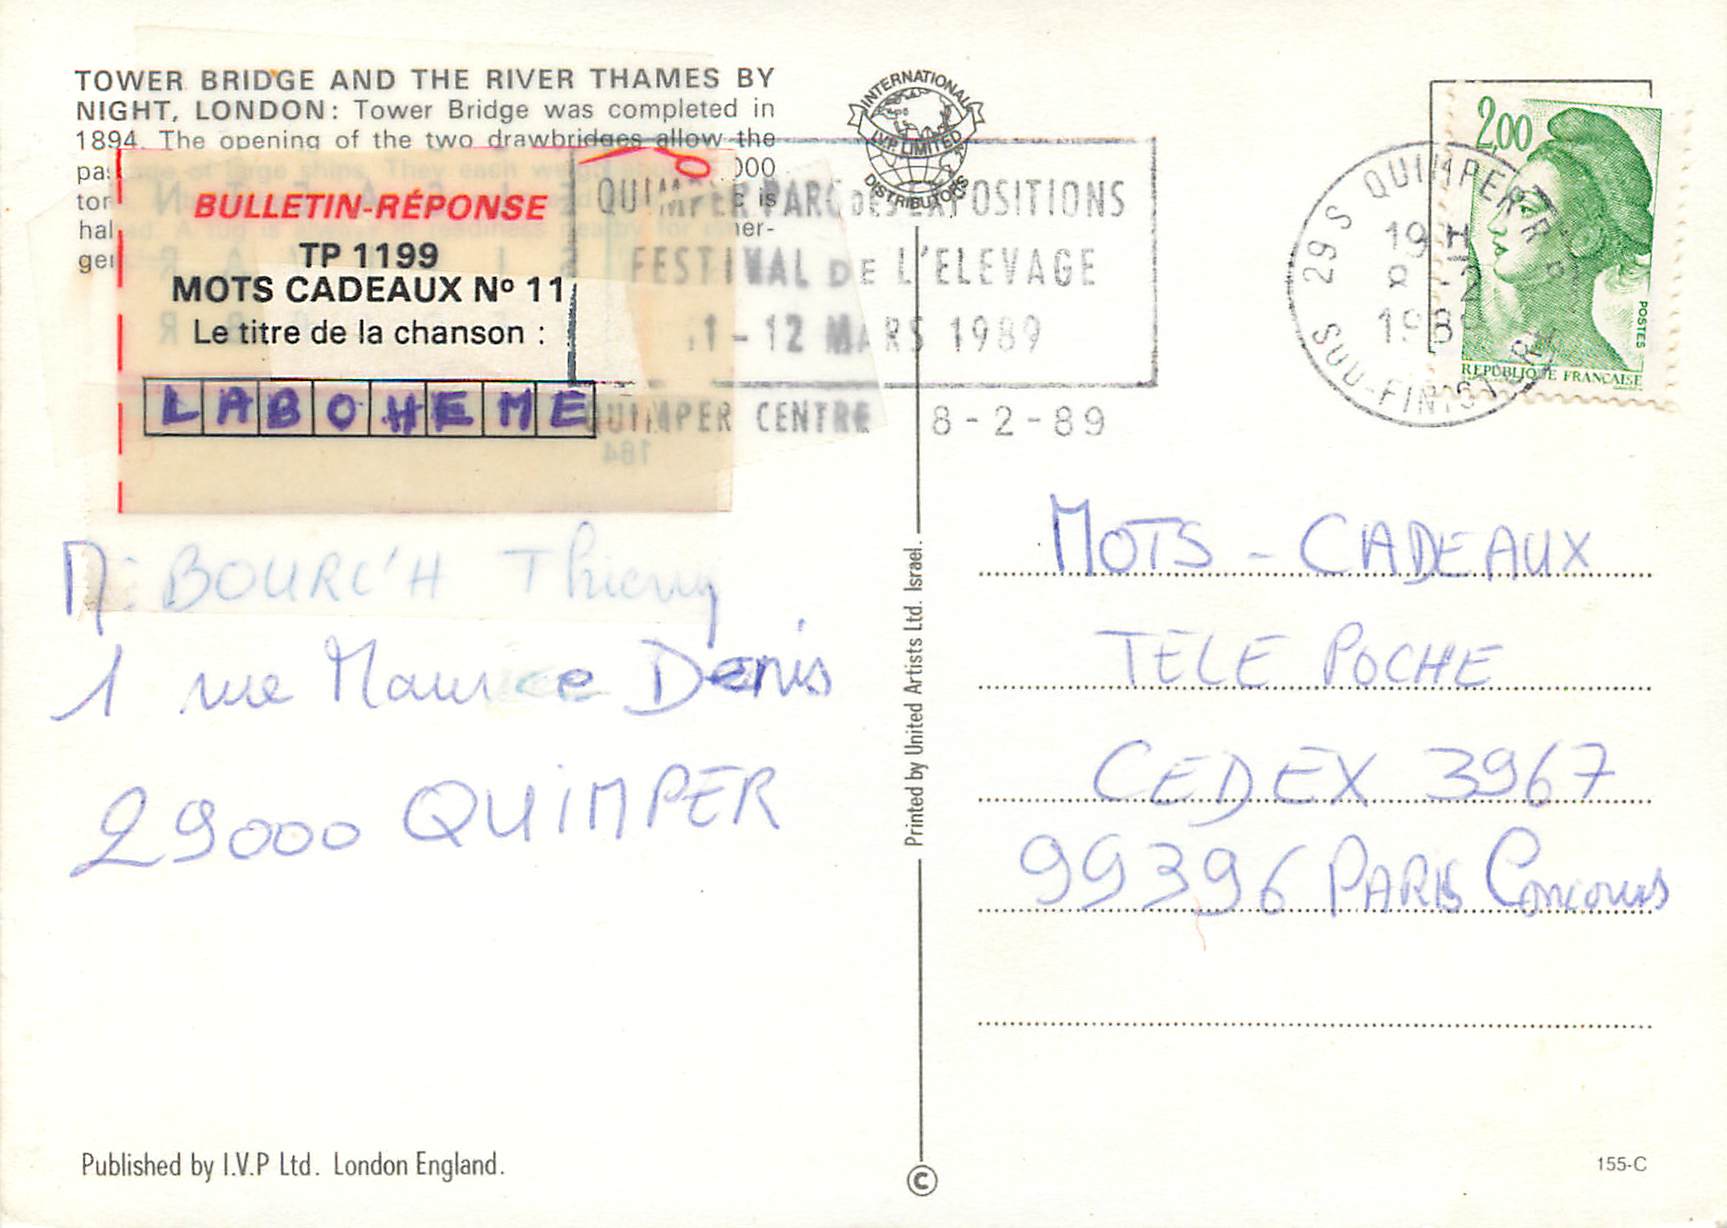 TOWER BRIDGE AND THE RIVER THAMES BY
NIGHT, LONDON: Tower Bridge was completed in
1894. The opening of the two drawbridges allow the
passage of large ships. They each weigh 000
tor is
hal A tug is in readiness nearby for emer-
gen
BULLETIN-RÉPONSE
TP 1199
MOTS CADEAUX Nº 11
Le titre de la chanson :
LABOHEME
184
M: BOURC'H Thierry
1 rue Maurice Denis
29000 QUIMPER
Published by I.V.P Ltd. London England.
INTERNATIONAL
I.V.P LIMITED
DISTRIBUTORS
QUIMPER PARC DES EXPOSITIONS
FESTIVAL DE L'ELEVAGE
11-12 MARS 1989
QUIMPER CENTRE 8-2-89
Printed by United Artists Ltd. Israel.
©
29 S QUIMPER TRI
19H
8-2
198
SUD-FINISTERE
2,00
POSTES
REPUBLIQUE FRANCAISE
MOTS - CADEAUX
TELE POCHE
CEDEX 3967
99396 PARIS Concours
155-C